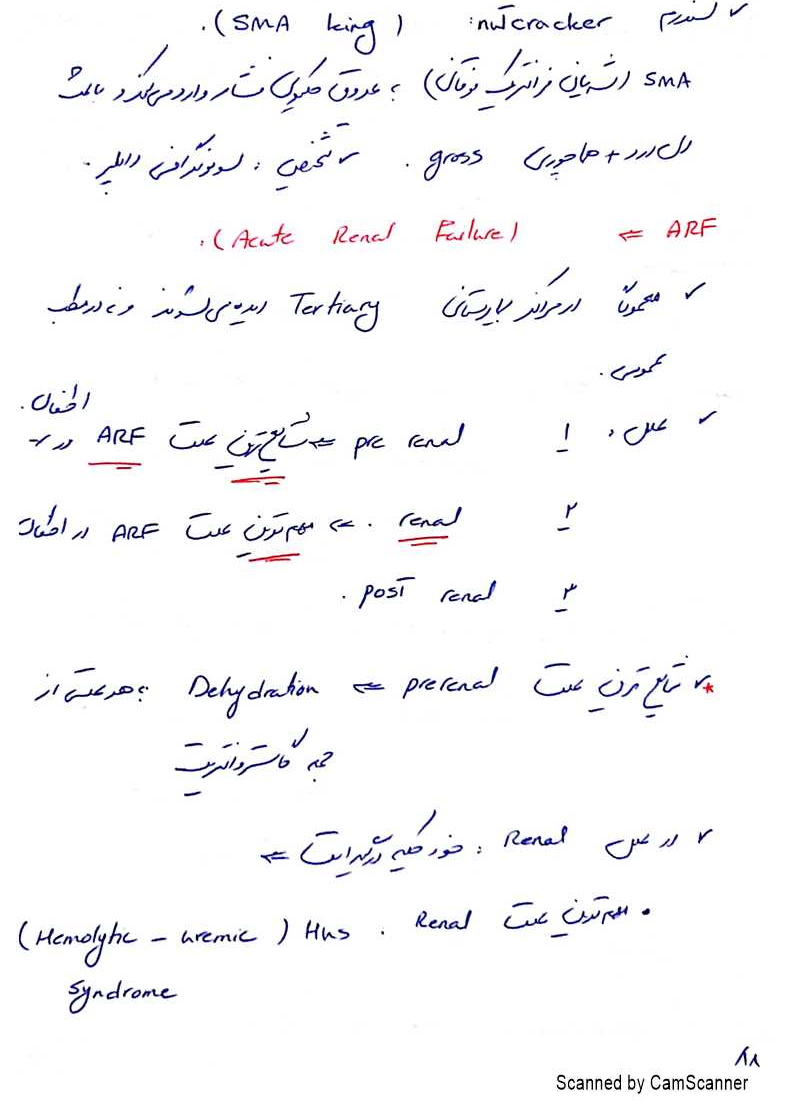 ✓ سندرم nutcracker: (SMA king).
SMA (شریان مزانتریک فوقانی) ؛ عروق کلیوی فشار وارد می‌کند و باعث
دل درد + هماچوری gross. ✓ تشخیص: سونوگرافی داپلر.
ARF ⇐ (Acute Renal Failure).
✓ معمولاً در مراکز بیمارستانی Tertiary دیده می‌شوند و نه در مطب
عمومی.
✓ علل: ۱ pre renal ⇐ شایع ترین علت ARF در اطفال.
۲ renal. ⇐ مهم ترین علت ARF در اطفال
۳ post renal.
*✓ شایع ترین علت prerenal ⇐ Dehydration ؛ هر علتی از
جمله گاستروانتریت
✓ در علل Renal: خود کلیه درگیر است ⇐
• مهم ترین علت Renal. HUS (Hemolytic - uremic
syndrome
۲۸
Scanned by CamScanner